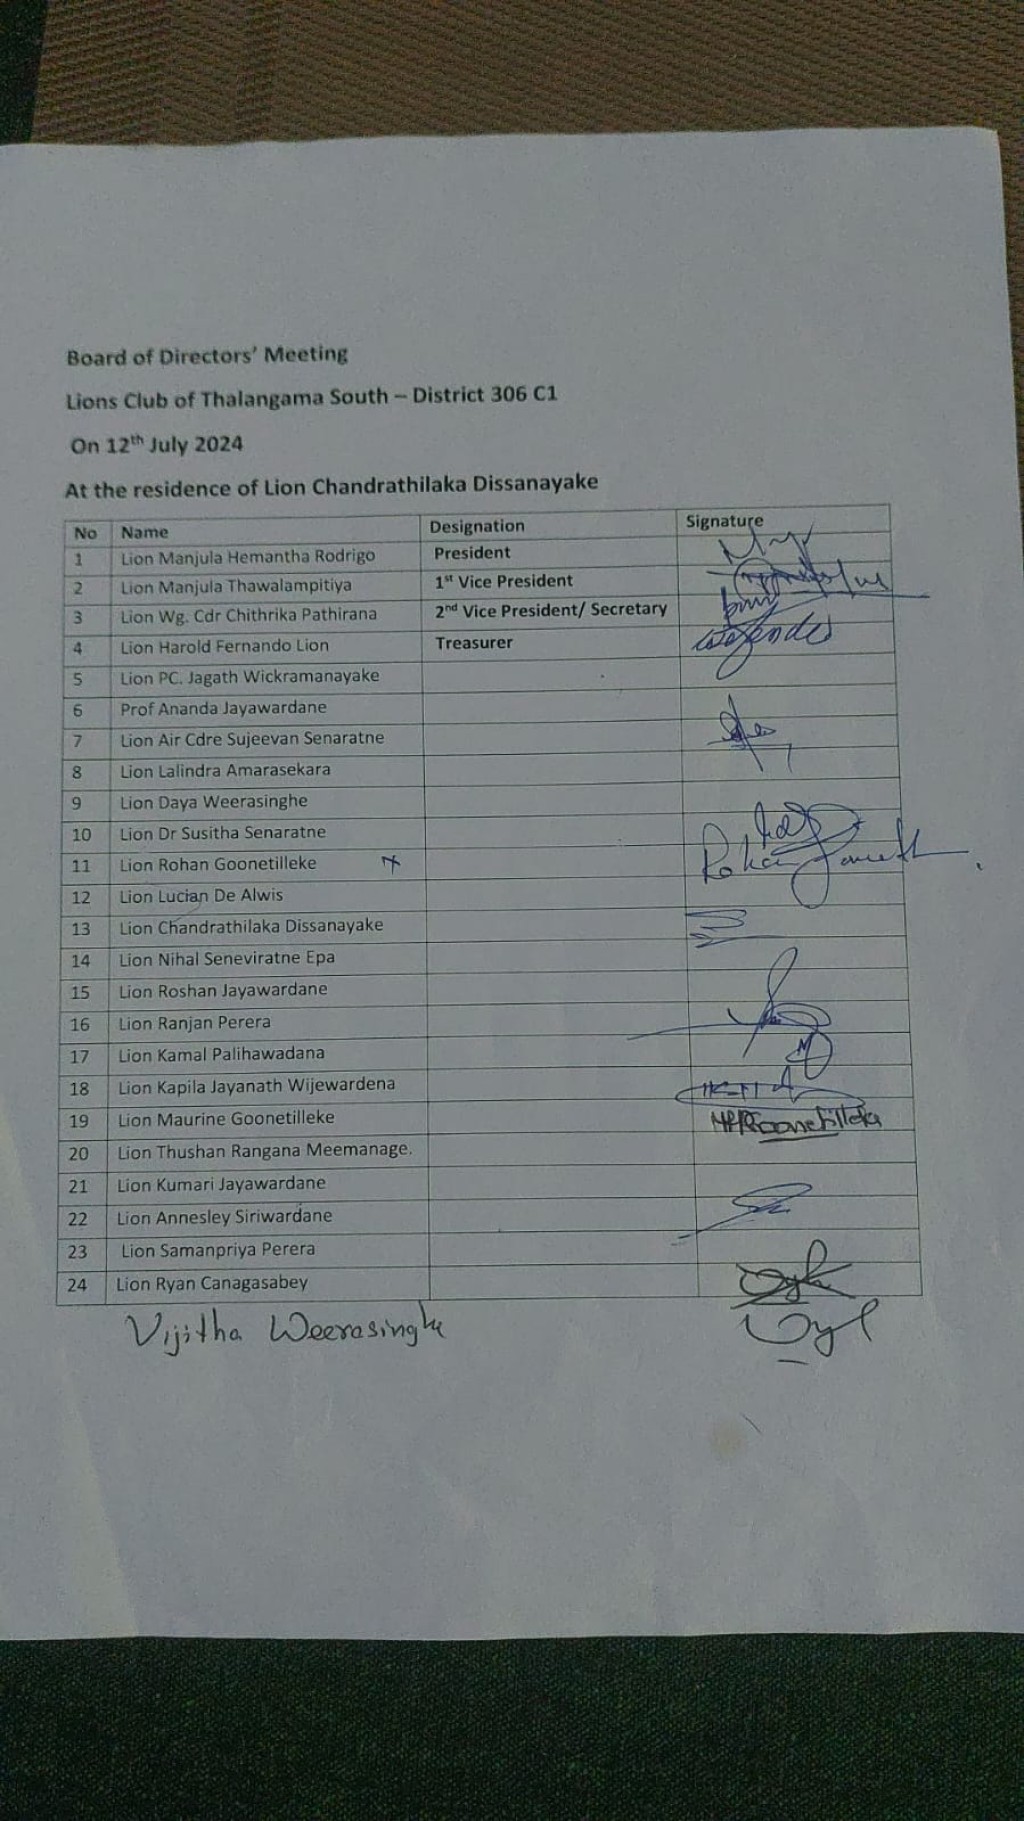 Board of Directors' Meeting
Lions Club of Thalangama South – District 306 C1
On 12th July 2024
At the residence of Lion Chandrathilaka Dissanayake
No Name Designation Signature
1 Lion Manjula Hemantha Rodrigo President
2 Lion Manjula Thawalampitiya 1st Vice President
3 Lion Wg. Cdr Chithrika Pathirana 2nd Vice President/ Secretary
4 Lion Harold Fernando Lion Treasurer
5 Lion PC. Jagath Wickramanayake
6 Prof Ananda Jayawardane
7 Lion Air Cdre Sujeevan Senaratne
8 Lion Lalindra Amarasekara
9 Lion Daya Weerasinghe
10 Lion Dr Susitha Senaratne
11 Lion Rohan Goonetilleke
12 Lion Lucian De Alwis
13 Lion Chandrathilaka Dissanayake
14 Lion Nihal Seneviratne Epa
15 Lion Roshan Jayawardane
16 Lion Ranjan Perera
17 Lion Kamal Palihawadana
18 Lion Kapila Jayanath Wijewardena
19 Lion Maurine Goonetilleke
20 Lion Thushan Rangana Meemanage.
21 Lion Kumari Jayawardane
22 Lion Annesley Siriwardane
23 Lion Samanpriya Perera
24 Lion Ryan Canagasabey
Vijitha Weerasinghe